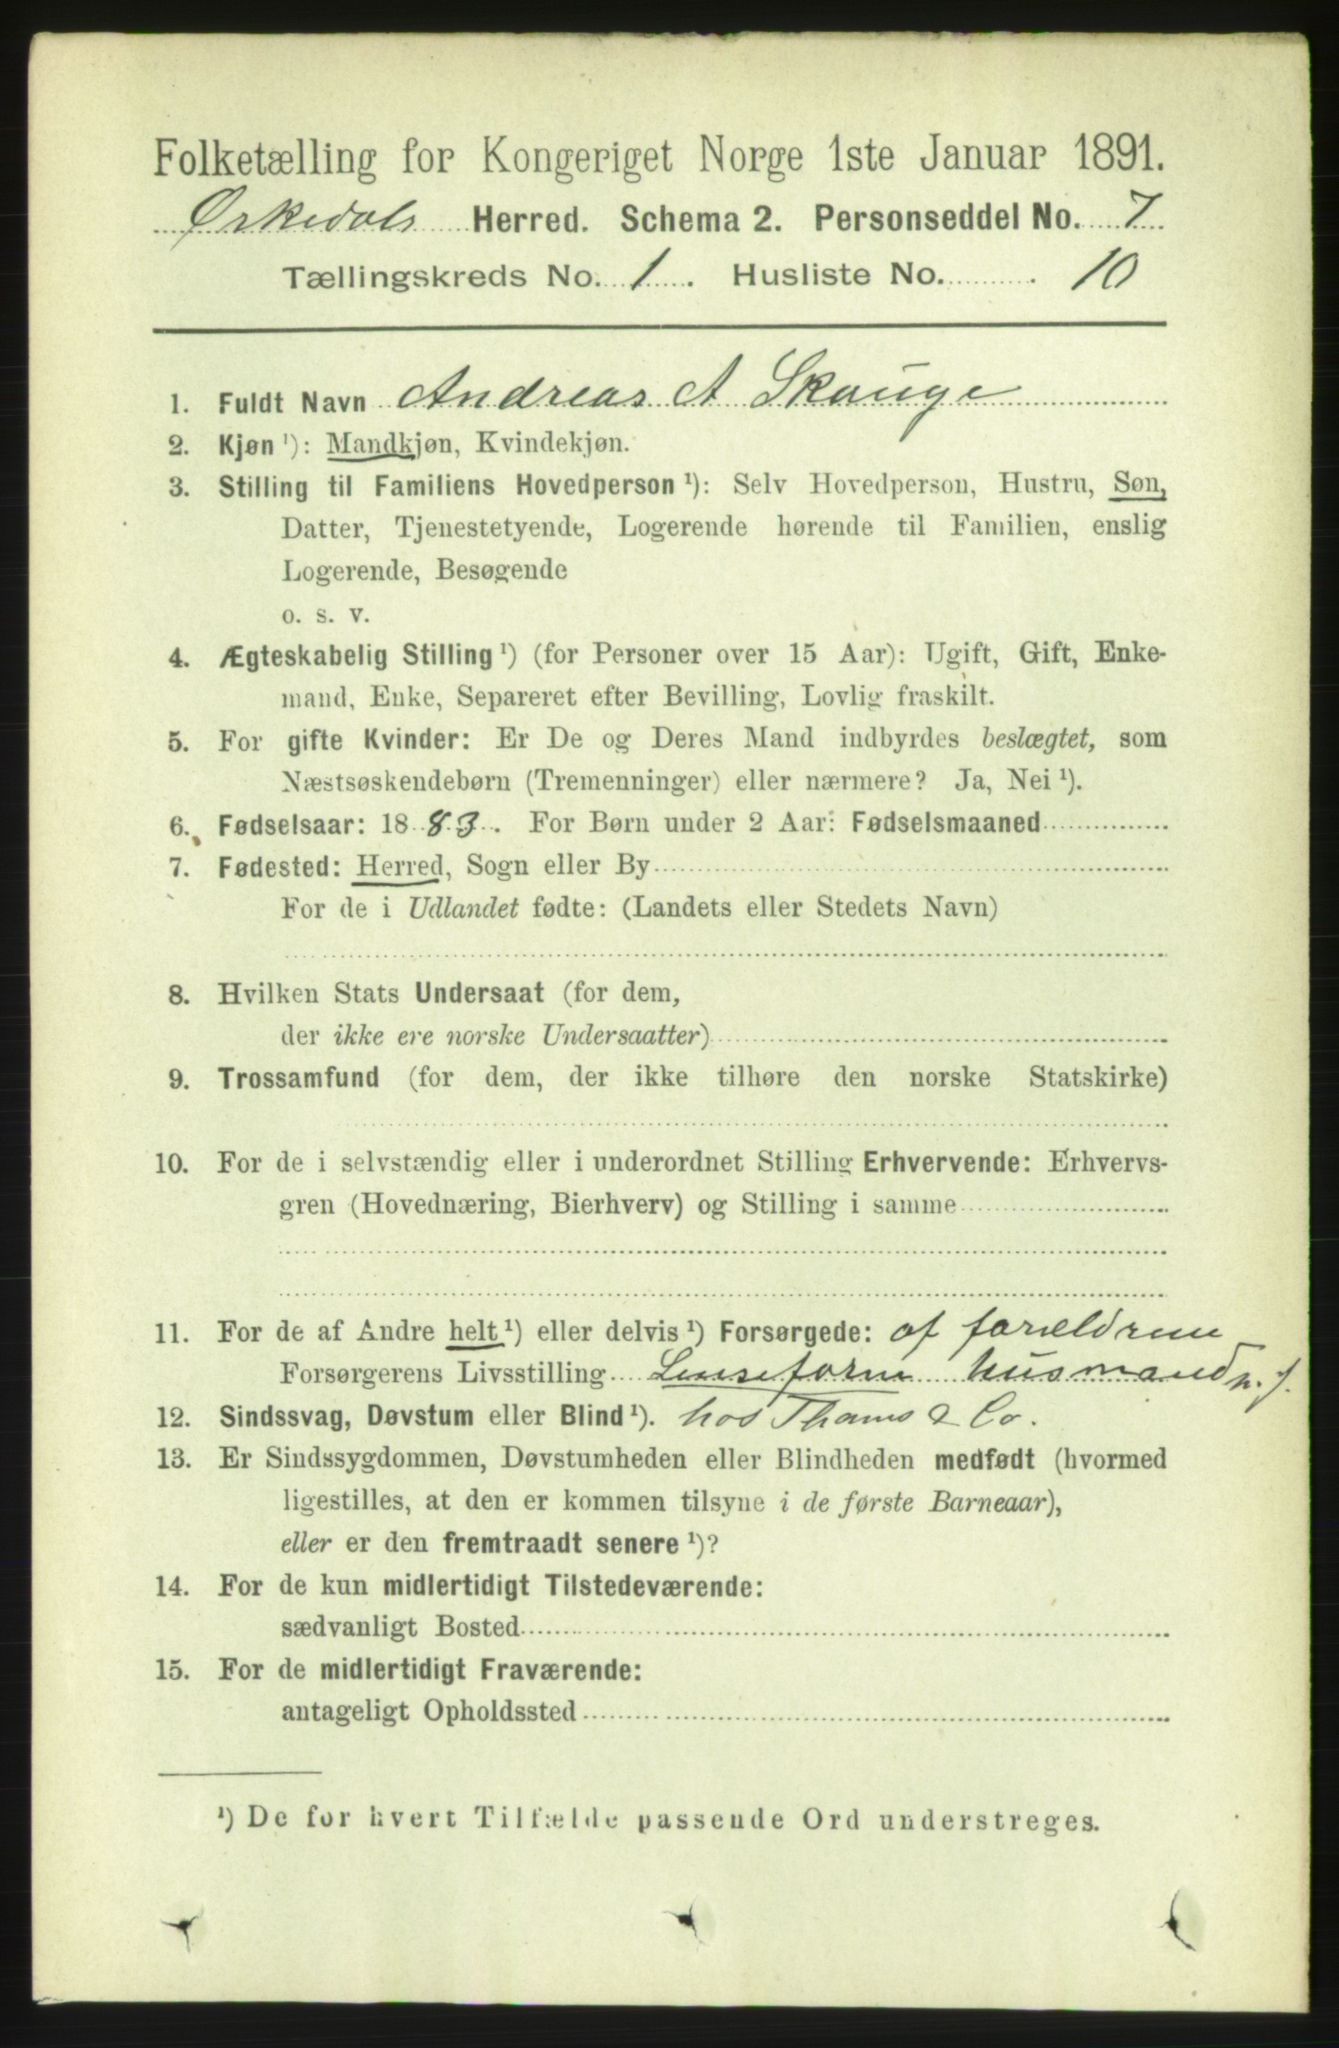 Folketælling for Kongeriget Norge 1ste Januar 1891.
Ørkedals Herred. Schema 2. Personseddel No. 7
Tællingskreds No. 1. Husliste No. 10
1. Fuldt Navn Andreas A Skauge
2. Kjøn ¹): Mandkjøn, Kvindekjøn.
3. Stilling til Familiens Hovedperson ¹): Selv Hovedperson, Hustru, Søn,
Datter, Tjenestetyende, Logerende hørende til Familien, enslig
Logerende, Besøgende
o. s. v.
4. Ægteskabelig Stilling ¹) (for Personer over 15 Aar): Ugift, Gift, Enke-
mand, Enke, Separeret efter Bevilling, Lovlig fraskilt.
5. For gifte Kvinder: Er De og Deres Mand indbyrdes beslægtet, som
Næstsøskendebørn (Tremenninger) eller nærmere? Ja, Nei ¹).
6. Fødselsaar: 1883. For Børn under 2 Aar: Fødselsmaaned
7. Fødested: Herred, Sogn eller By
For de i Udlandet fødte: (Landets eller Stedets Navn)
8. Hvilken Stats Undersaat (for dem,
der ikke ere norske Undersaatter)
9. Trossamfund (for dem, der ikke tilhøre den norske Statskirke)
10. For de i selvstændig eller i underordnet Stilling Erhvervende: Erhvervs-
gren (Hovednæring, Bierhverv) og Stilling i samme
11. For de af Andre helt ¹) eller delvis ¹) Forsørgede: af forældrene
Forsørgerens Livsstilling husmand
12. Sindssvag, Døvstum eller Blind ¹). hos Thams & Co.
13. Er Sindssygdommen, Døvstumheden eller Blindheden medfødt (hvormed
ligestilles, at den er kommen tilsyne i de første Barneaar),
eller er den fremtraadt senere ¹)?
14. For de kun midlertidigt Tilstedeværende:
sædvanligt Bosted
15. For de midlertidigt Fraværende:
antageligt Opholdssted
¹) De for hvert Tilfælde passende Ord understreges.